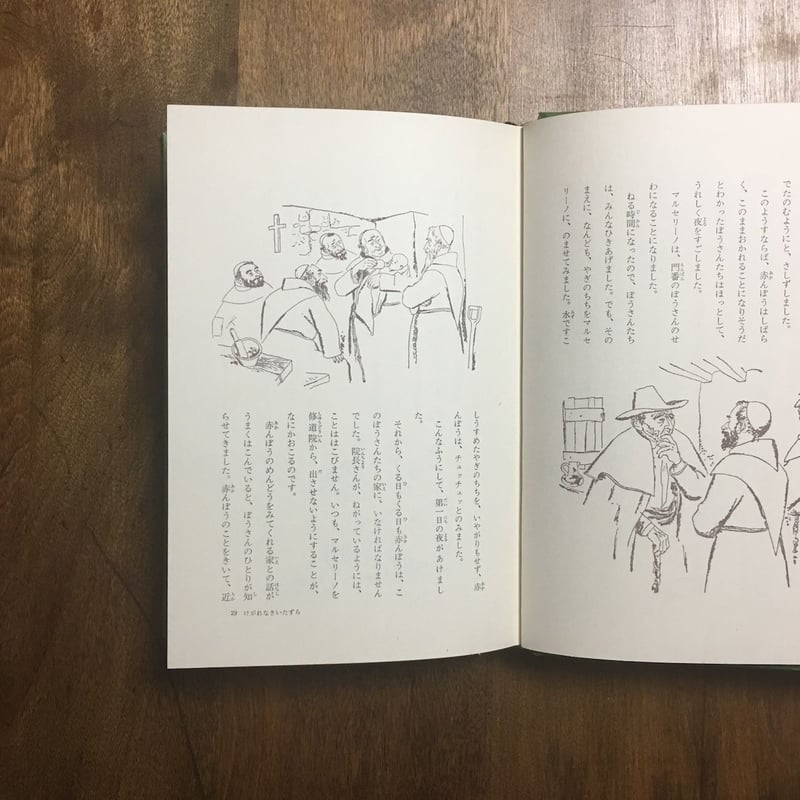 でたのむようにと、さしずしました。
このようすならば、赤んぼうはしばら
く、このままおかれることになりそうだ
とわかったぼうさんたちはほっとして、
うれしく夜をすごしました。
マルセリーノは、門番のぼうさんのせ
わになることになりました。
ねる時間になったので、ぼうさんたち
は、みんなひきあげました。でも、その
まえに、なんども、やぎのちちをマルセ
リーノに、のませてみました。水ですこ
しうすめたやぎのちちを、いやがりもせず、赤
んぼうは、チュッチュッとのみました。
こんなふうにして、第一日の夜があけまし
た。
それから、くる日もくる日も赤んぼうは、こ
のぼうさんたちの家に、いなければなりません
でした。院長さんが、ねがっているようには、
ことははこびません。いつも、マルセリーノを
修道院から、出させないようにすることが、
なにかおこるのです。
赤んぼうのめんどうをみてくれる家との話が
うまくはこんでいると、ぼうさんのひとりが知
らせてきました。赤んぼうのことをきいて、近
29 けがれなきいたずら